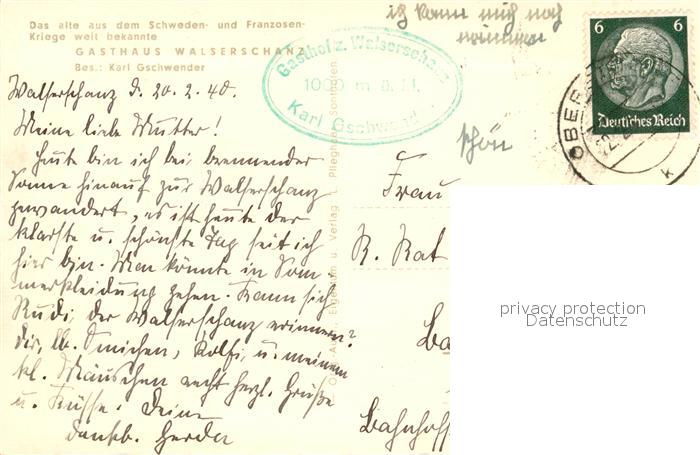 Das alte aus dem Schweden- und Franzosen-
Kriege weit bekannte
GASTHAUS WALSERSCHANZ
Bes.: Karl Gschwender
Gasthof z. Walserschanz
1000 m ü. M.
Karl Gschwend
ich kann mich noch
erinnern
schön
6 6
Deutsches Reich
OBER
k
Walserschanz d. 20.2.40.
Meine liebe Mutter!
Heute bin ich bei brennender
Sonne hinauf zur Walserschanz
gewandert, es ist heute der
klarste u. schönste Tag seit ich
hier bin. Man könnte in Som
merkleidung gehen. Kann sich
Rudi der Walserschanz erinnern?
Dir, lb. Omichen, Rolfi u. meinem
kl. Mäuschen recht herzl. Grüße
u. Küsse. Deine
dankb. Gerda
Eigentum u. Verlag Pfleghar, Sonthofen
Frau
K. Rat
Ba
Bahnhofs
privacy protection
Datenschutz